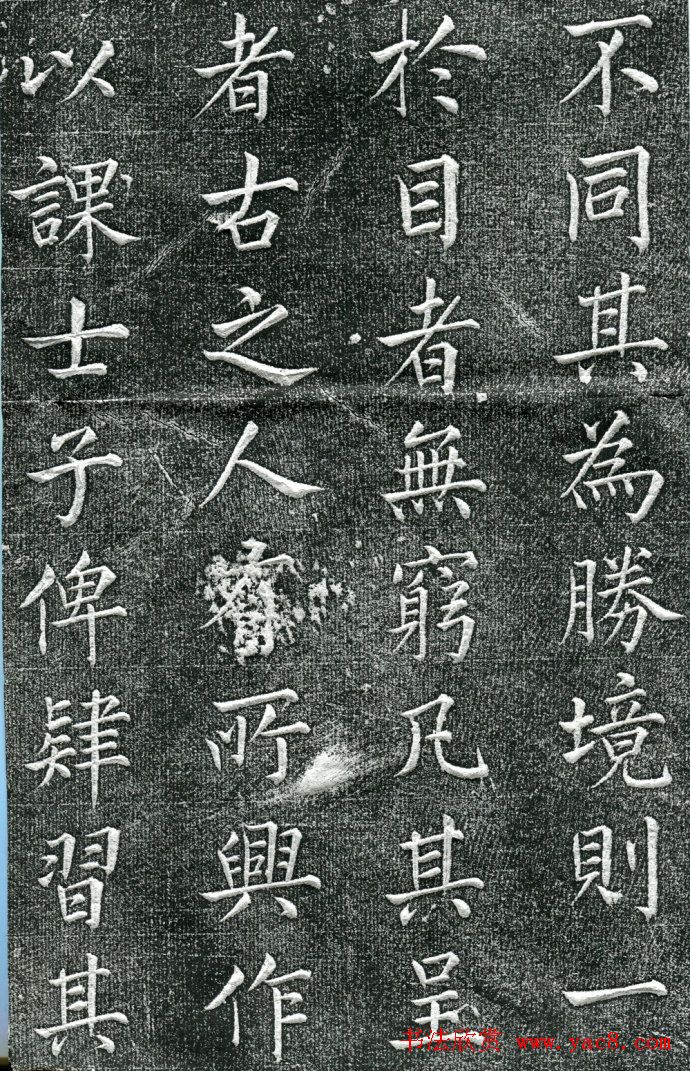 不同其為勝境則一
於目者無窮凡其呈
者古之人有所興作
以課士子俾肄習其
书法欣赏 www.yac8.com